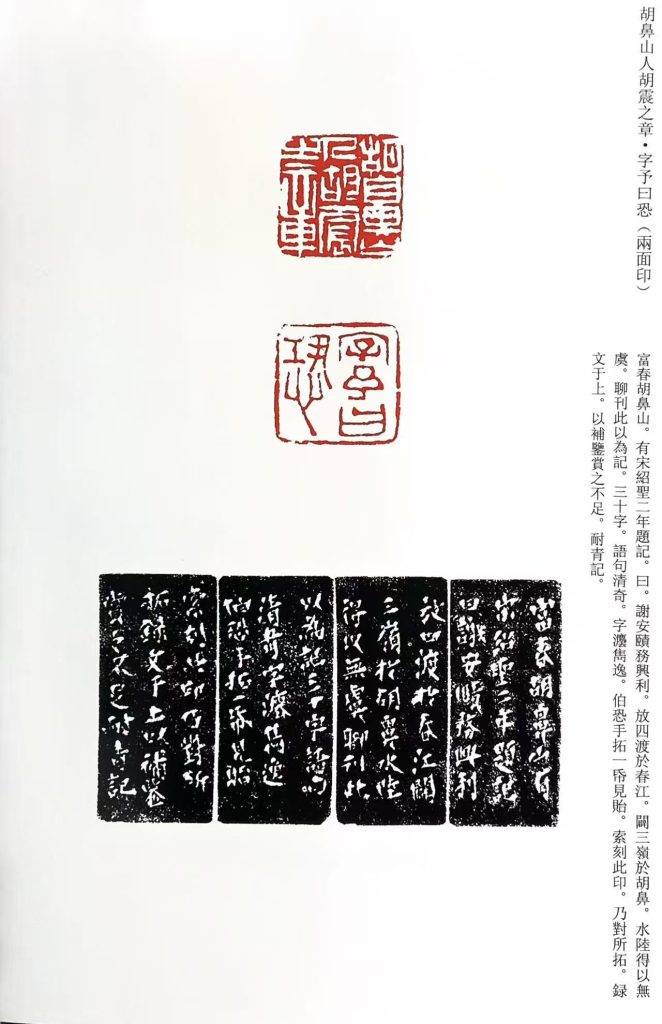 胡鼻山人胡震之章・字予曰恐（兩面印）
富春胡鼻山。有宋紹聖二年題記。曰。謝安頤務興利。放四渡於春江。闢三嶺於胡鼻。水陸得以無
虞。聊刊此以為記。三十字。語句清奇。字灋雋逸。伯恐手拓一帋見貽。索刻此印。乃對所拓。録
文于上。以補鑒賞之不足。耐青記。
胡鼻山
人胡震
之章
字予曰
恐
富春胡鼻山有
宋紹聖二年題記
曰謝安頤務興利
放四渡於春江闢
三嶺於胡鼻水陸
得以無虞聊刊此
以為記三十字語句
清奇字灋雋逸
伯恐手拓一帋見貽
索刻此印乃對所
拓録文于上以補鑒
賞之不足耐青記